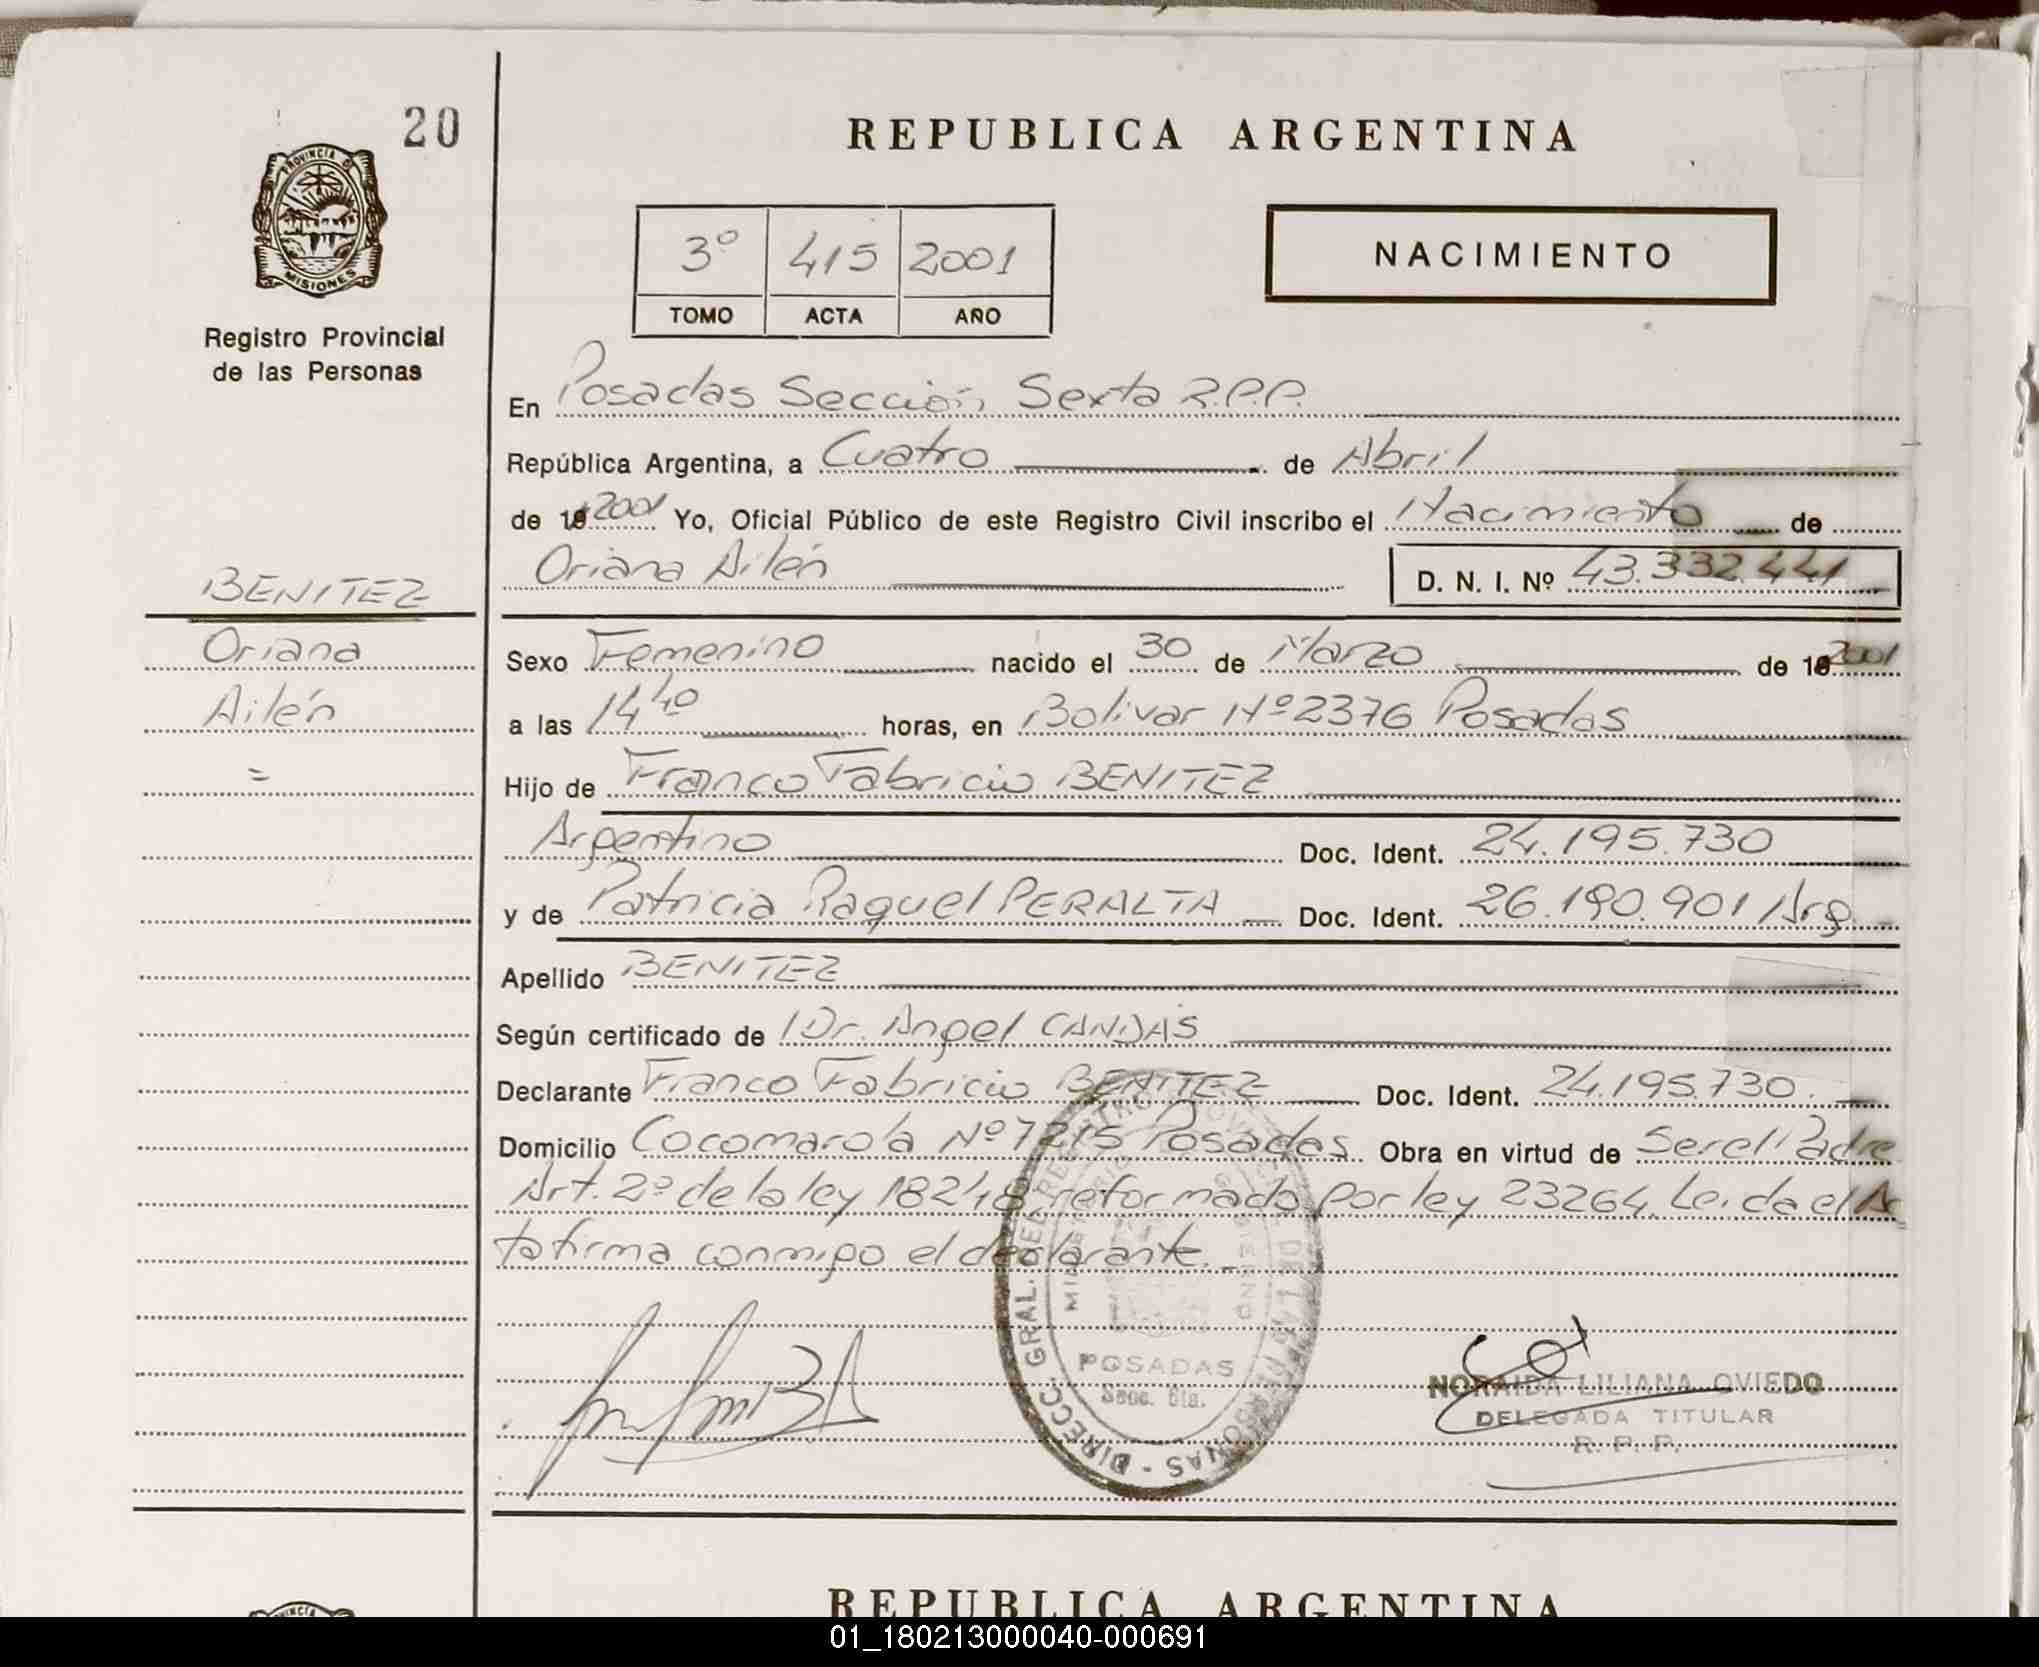 20
REPUBLICA ARGENTINA
PROVINCIA DE
MISIONES
Registro Provincial
de las Personas
3º 415 2001
TOMO ACTA AÑO
NACIMIENTO
En Posadas Sección Sexta R.P.P.
República Argentina, a Cuatro de Abril
de 19 2001 Yo, Oficial Público de este Registro Civil inscribo el Nacimiento de
Oriana Ailén D. N. I. Nº 43.332.441
BENITEZ
Oriana
Ailén
=
Sexo Femenino nacido el 30 de Marzo de 19 2001
a las 14 40 horas, en Bolivar Nº 2376 Posadas
Hijo de Franco Fabricio BENITEZ
Argentino Doc. Ident. 24.195.730
y de Patricia Raquel PERALTA Doc. Ident. 26.190.901 Arg.
Apellido BENITEZ
Según certificado de Dr. Angel CANDAS
Declarante Franco Fabricio BENITEZ Doc. Ident. 24.195.730.
Domicilio Cocomarola Nº 7215 Posadas. Obra en virtud de Ser el Padre
Art. 2º de la ley 18248, reformado por ley 23264. Leida el Ac
ta firma conmigo el declarante.
DIRECC. GRAL. DEL REGISTRO
MISIONES
POSADAS
Secc. 6ta.
NORAIDA LILIANA OVIEDO
DELEGADA TITULAR
R. P. P.
REPUBLICA ARGENTINA
01_180213000040-000691